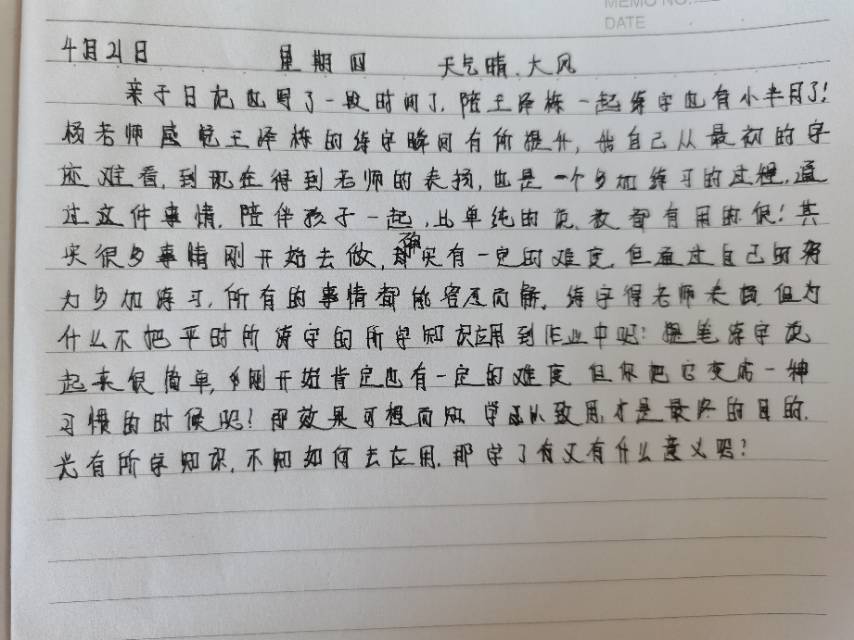 MEMO NO.
DATE
4月21日 星期四 天气晴.大风
亲子日记也写了一段时间了,陪王泽栋一起练字也有小半月了!
杨老师感觉王泽栋的练字瞬间有所提升,他自己从最初的字
迹难看,到现在得到老师的表扬,也是一个多加练习的过程,通
过这件事情,陪伴孩子一起,比单纯的说教都有用的很!其
实很多事情刚开始去做,确实有一定的难度,但通过自己的努
力多加练习,所有的事情都能容及而解,练字得老师表扬,但为
什么不把平时所练字的所学知识应用到作业中呢!提笔练字说
起来很简单,刚开始肯定也有一定的难度 但你把它变成一种
习惯的时候呢!那效果可想而知 学以致用,才是最终的目的.
光有所学知识,不知如何去应用.那学了有又有什么意义呢?